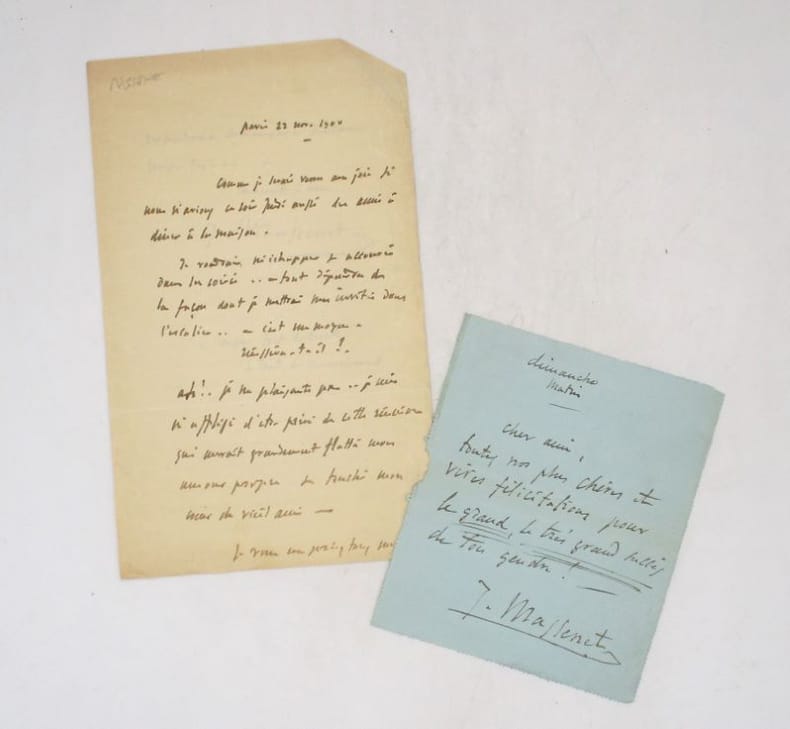 Paris 22 nov. 1900
Comme je serais venu avec joie si
nous n'avions ce soir jeudi aussi des amis à
dîner à la maison.
Je voudrais m'échapper
dans la soirée .. – tout dépendra de
la façon dont je mettrai mes invités dans
l'escalier .. – c'est un moyen –
réussira-t-il ?.
ah !.. je ne plaisante pas .. je suis
si affligé d'être privé de cette réunion
qui aurait grandement flatté mon
amour propre et touché mon
cœur de vieil ami —
Je vous
dimanche
matin
cher ami,
toutes nos plus chères et
vives félicitations pour
le grand, le très grand succès
de ton gendre !
J. Massenet